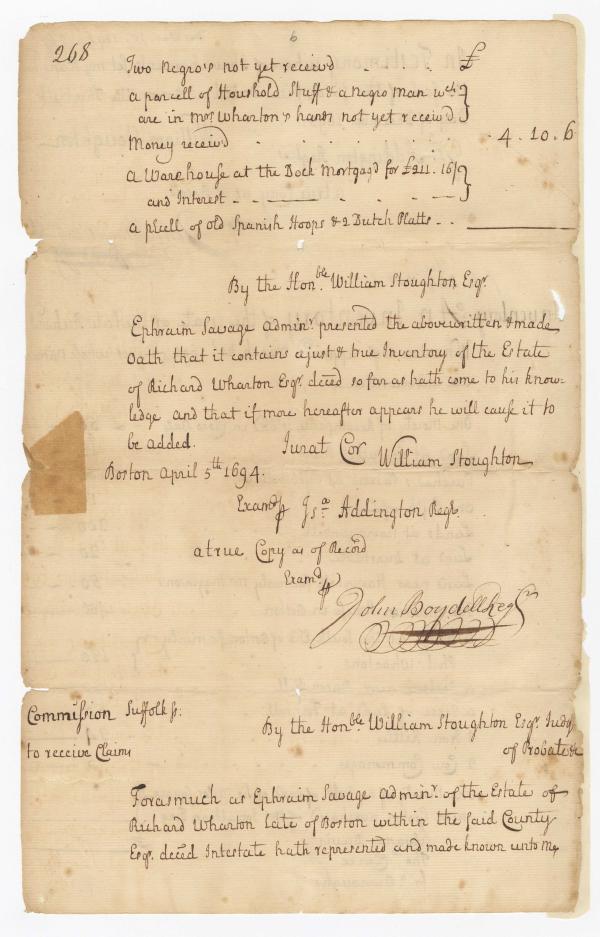 6
268
Two Negro's not yet receivd . . . £
a parcell of Houshold Stuff & a Negro man wch
are in Mrs. Wharton's hands not yet receiv'd
Money receivd . . . . . . 4 . 10 . 6
a Warehouse at the Dock Mortgag'd for £211 . 16/
and Interest - - — - - - —
a pcell of old Spanish Hoops & 2 Dutch Platts - -
By the Honble. William Stoughton Esqr.
Ephraim Savage Adminr. presented the abovewritten & made
Oath that it contains a just & true Inventory of the Estate
of Richard Wharton Esqr. deced so far as hath come to his know-
ledge and that if more hereafter appears he will cause it to
be added.
Jurat Cor William Stoughton
Boston April 5th 1694.
Examd p Jsa. Addington Regr.
a true Copy as of Record
Examd. p
John Boydell Regr
Commission Suffolk ss:
to receive Claims
By the Honble. William Stoughton Esqr. Judg
of Probate &c
Forasmuch as Ephraim Savage Adminr. of the Estate of
Richard Wharton Late of Boston within the said County
Esqr. deced Intestate hath represented and made known unto Me,